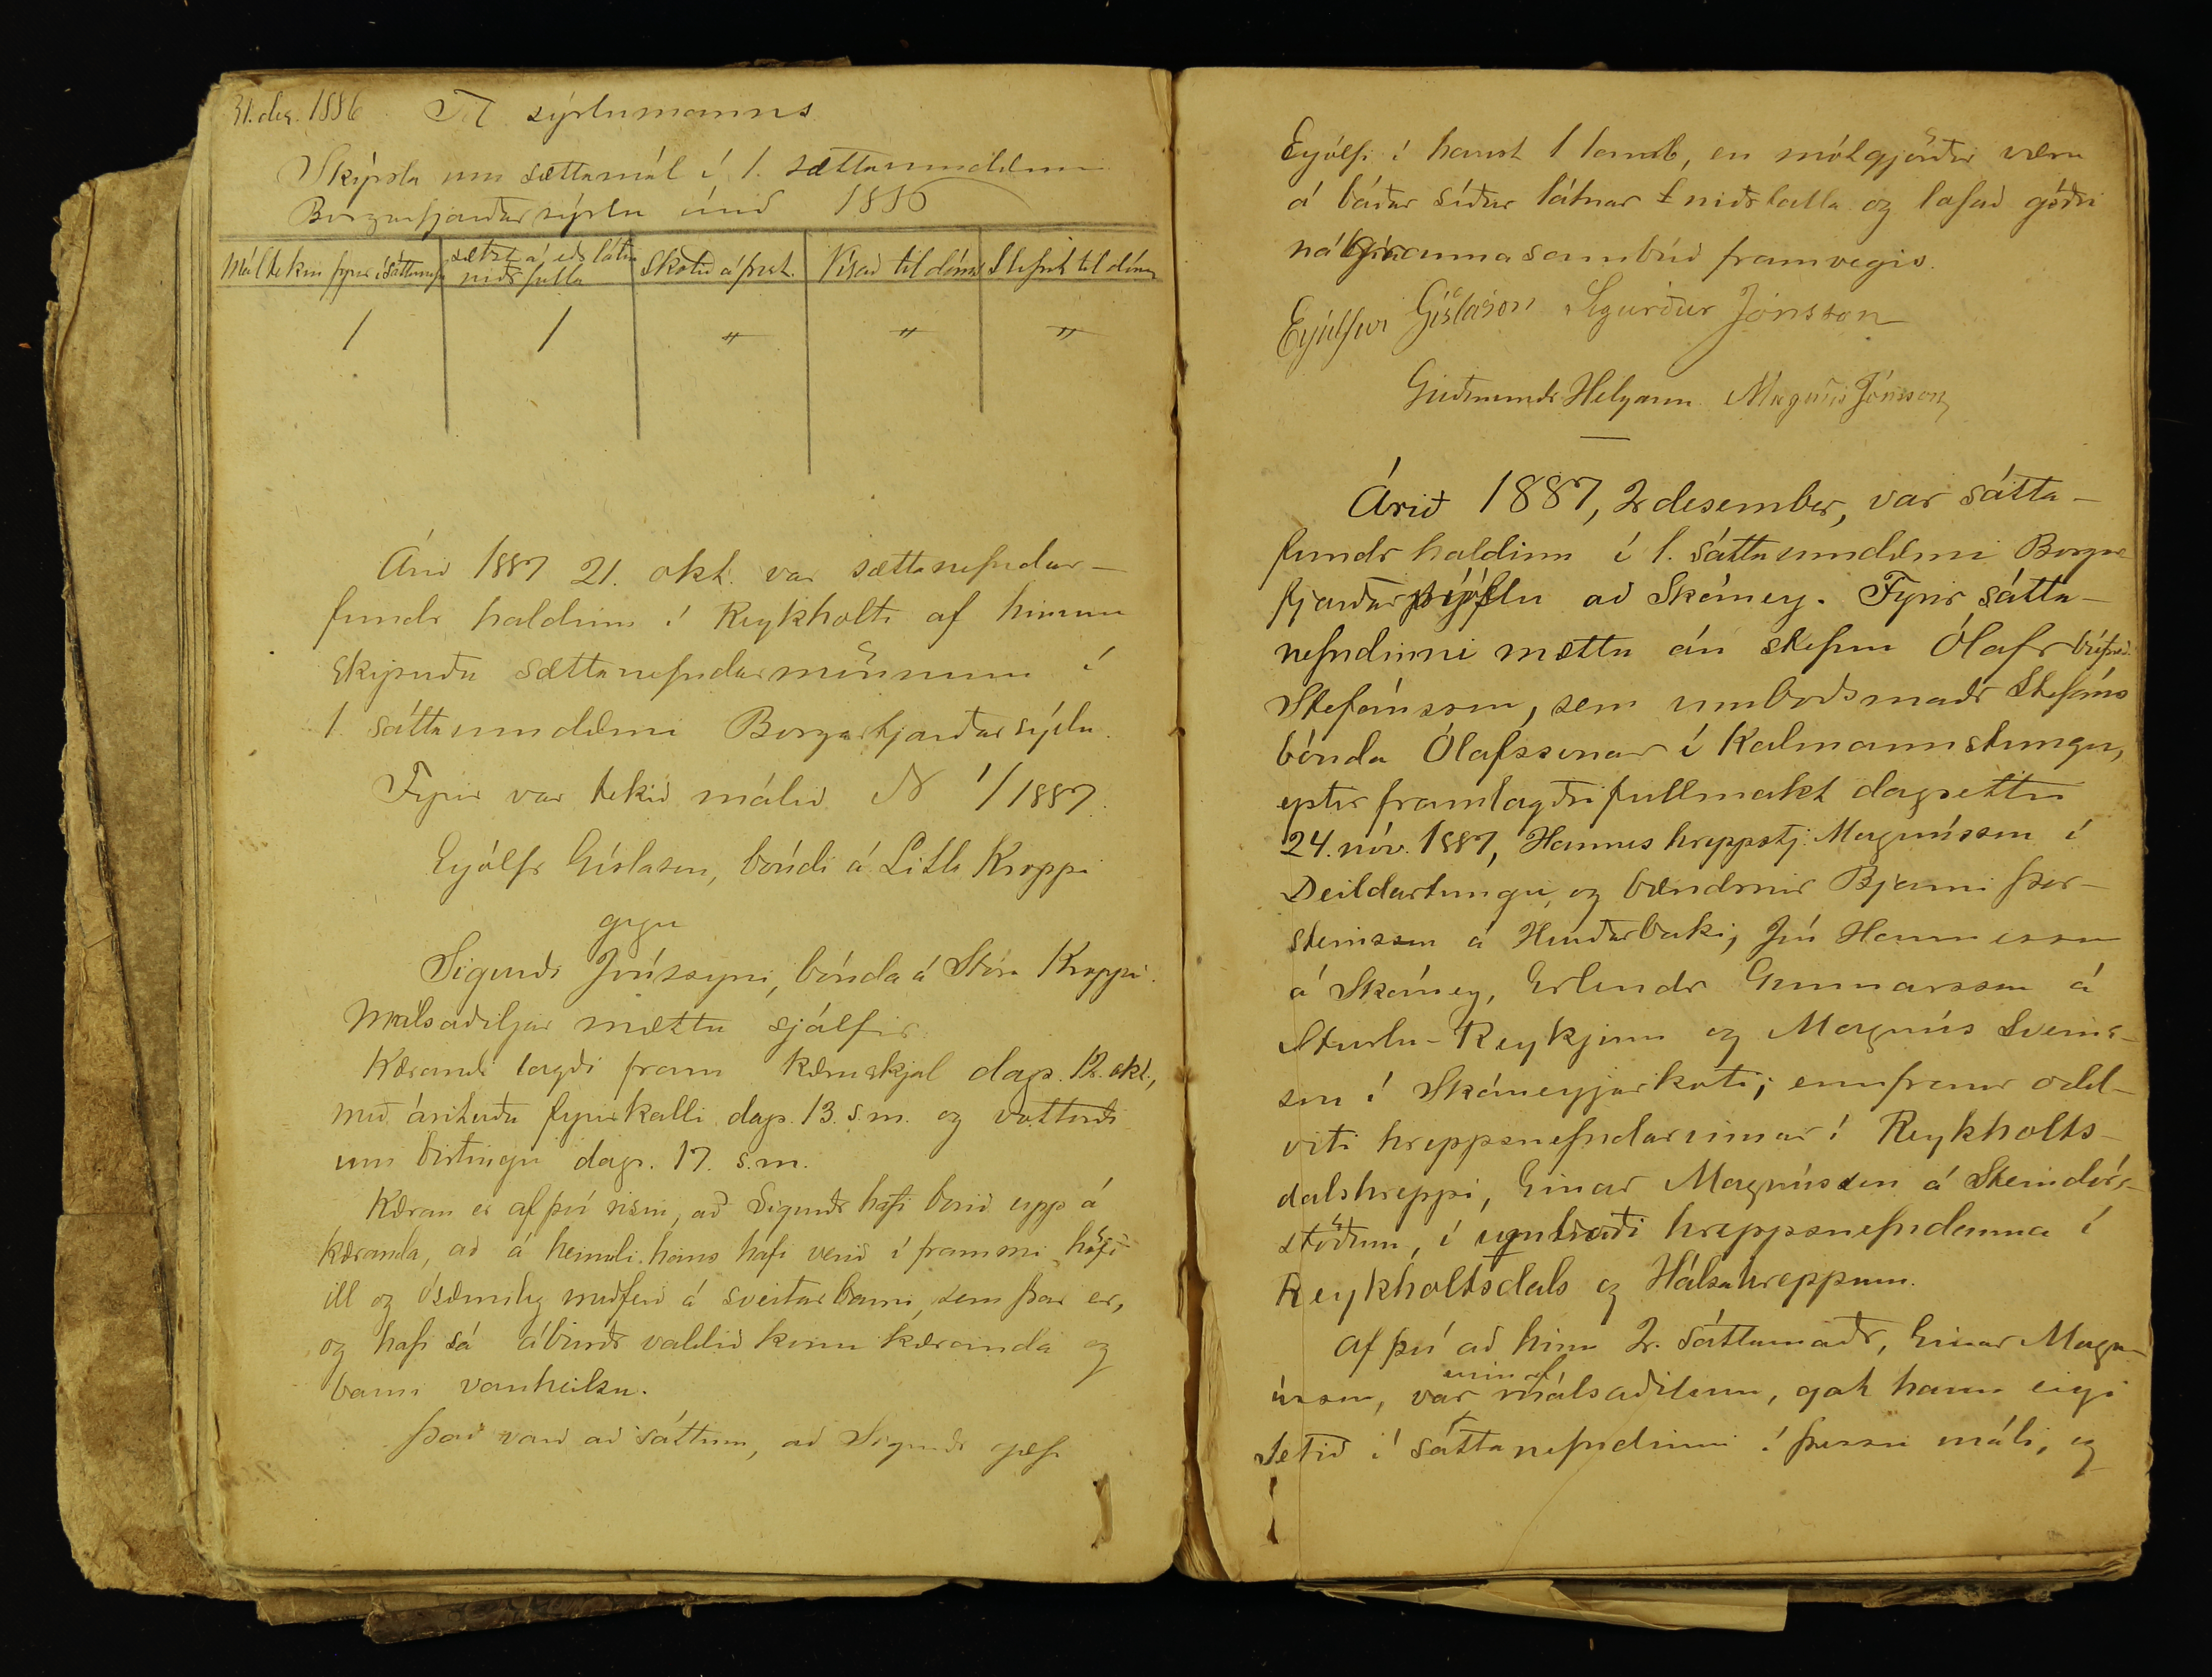 31. des. 1886 Til sýslumanns
Skýrsla um sættamál í 1. sættaumdæmi
Borgarfjarðarsýslu árið 1886
Mál tekin fyrir í Sáttanefn
sætzt á eðr látin niðr falla
Skotið á frest.
Vísað til dóms
Stefnt til dóms
1 1 " " "
Árið 1887 21. okt. var sættanefndar-
fundr haldinn í Reykholti af hinum
skipuðu sættanefndarmönnum í
1. sáttaumdæmi Borgarfjarðarsýslu.
Fyrir var tekið málið N 1/1887.
Eyjólfr Gíslason, bóndi á Litla Kroppi
gegn
Sigurði Jónssyni, bónda á Stóra Kroppi.
Málsaðiljar mættu sjálfir.
Kærandi lagði fram kæruskjal dags. 12. okt.,
með árituðu fyrirkalli dags. 13. s.m. og vottorði
um birtingu dags. 17. s.m.
Kæran er af því risin, að Sigurðr hafi borið upp á
kæranda, að á heimili hans hafi verið í frammi höfð
ill og ósæmileg meðferð á sveitarbarni, sem þar er,
og hafi sá áburðr valdið konu kæranda og
barni vanheilsu.
Það varð að sáttum, að Sigurðr gæfi
Eyjólfi í haust 1 lamb, en málgjörðir væru
á báðar síður látnar niðrfalla og lofað góðri
nágranna sambúð framvegis.
Eyjúlfur Gíslason Sigurður Jónsson
Guðmundr Helgason Magnús Jónsson
Árið 1887, 2 desember, var sátta-
fundr haldinn í 1. sáttaumdæmi Borgar
fjarðarsýslu að Skáney. Fyrir sátta-
nefndinni mættu án stefnu Ólafr búfræð.
Stefánsson, sem umboðsmaðr Stefáns
bónda Ólafssonar í Kalmannstungu,
eptir framlagðri fullmakt dagsettri
24. nóv. 1887, Hannes hreppstj. Magnússon í
Deildartungu, og bændrnir Bjarni Þor-
steinsson á Hurðarbaki, Jón Hannesson
á Skáney, Erlendr Gunnarsson á
Sturlu-Reykjum og Magnús Sveins-
son í Skáneyjarkoti; ennfremr odd-
viti hreppsnefndarinnar í Reykholts-
dalshreppi, Einar Magnússon á Steindórs-
stöðum, í umboði hreppsnefndanna í
Reykholtsdals og Hálsahreppum.
Af því að hinn 2. sáttamaðr, Einar Magn-
ússon, var einn af málsaðilum, gat hann eigi
setið í sáttanefndinni í þessu máli, og